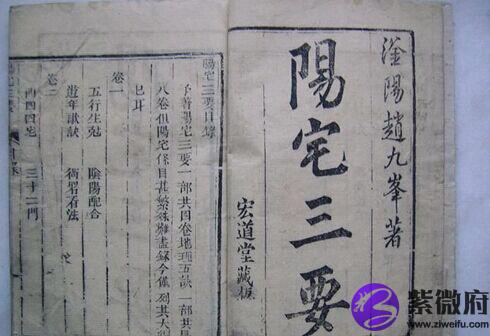 滏陽趙九峯著
陽宅三要
宏道堂藏板
陽宅三要目錄
予著陽宅三要一部共四卷地理五訣一部共
八卷但陽宅條目甚繁殊難盡錄今僅列其大
已耳
卷一
五行生尅 陰陽配合
遊年歌訣 衙署看法
卷二
西四四宅 三十二門
紫微府
www.ziweifu.com